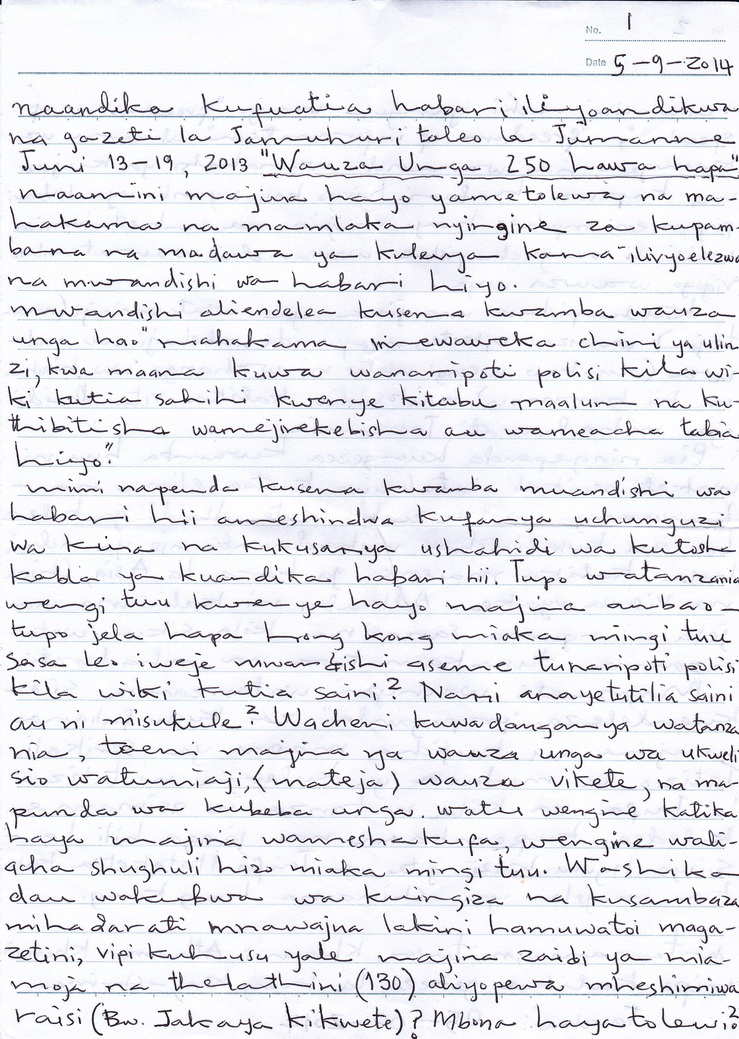 No. 1
Date 5-9-2014
naandika kufuatia habari iliyoandikwa
na gazeti la Jamuhuri toleo la Jumanne
Juni 13-19, 2013 "Wauza Unga 250 hawa hapa"
naamini majina hayo yametolewa na ma-
hakama na mamlaka nyingine za kupam-
bana na madawa ya kulevya kama ilivyoelezwa
na mwandishi wa habari hiyo.
mwandishi aliendelea kusema kwamba wauza
unga hao "mahakama imewaweka chini ya ulin
zi, kwa maana kuwa wanaripoti polisi kila wi-
ki kutia sahihi kwenye kitabu maalum na ku-
thibitisha wamejirekebisha au wameacha tabia
hiyo".
mimi napenda kusema kwamba mwandishi wa
habari hii ameshindwa kufanya uchunguzi
wa kina na kukusanya ushahidi wa kutosha
kabla ya kuandika habari hii. Tupo watanzania
wengi tuu kwenye hayo majina ambao-
tupo jela hapa Hong kong miaka mingi tuu
sasa leo iweje mwandishi aseme tunaripoti polisi
kila wiki kutia saini? Nani anayetutilia saini
au ni misukule? Wacheni kuwadanganya watanza
nia, toeni majina ya wauza unga wa ukweli
sio watumiaji, (mateja) wauza vikete, na ma-
punda wa kubeba unga. watu wengine katika
haya majina wameshakufa, wengine wali-
acha shughuli hizo miaka mingi tuu. Washika
dau wakubwa wa kuingiza na kusambaza
mihadarati mnawajua lakini hamuwatoi maga-
zetini, vipi kuhusu yale majina zaidi ya mia-
moja na thelathini (130) aliyopewa mheshimiwa
raisi (Bw. Jakaya kikwete)? Mbona hayatolewi?